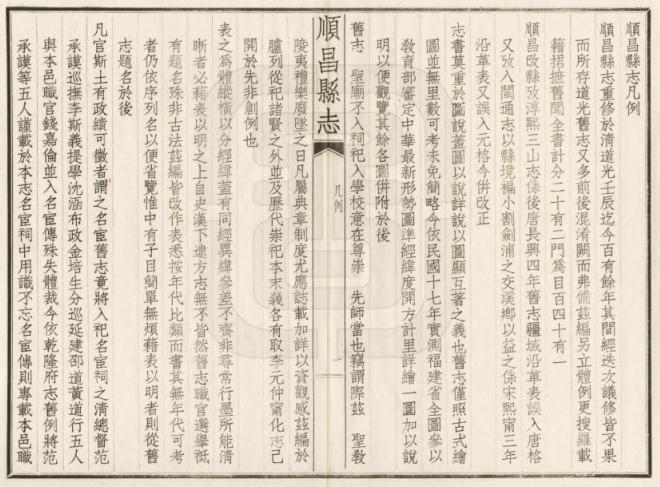 順昌縣志凡例
順昌縣志重修於淸道光壬辰迄今百有餘年其間經迭次議修皆不果
而所存道光舊志又多前後混淆闕而弗備茲編另立體例更搜羅載
籍捃摭舊聞全書計分二十有二門爲目百四十有一
順昌改縣攷淳熙三山志係後唐長興四年舊志疆域沿革表誤入唐格
又攷入閩通志以縣境褊小割劍浦之交溪鄕以益之係宋熙甯三年
沿革表又誤入元格今併改正
志書莫重於圖說蓋圖以說詳說以圖顯互著之義也舊志僅照古式繪
圖並無里數可考未免簡略今依民國十七年實測福建省全圖參以
敎育部審定中華最新形勢圖準經緯度開方計里詳繪一圖加以說
明以便觀覽其餘各圖併附於後
舊志 聖廟不入祠祀入學校意在尊崇 先師當也竊謂際茲 聖敎
順昌縣志
凡例
一
陵夷禮樂廢墜之日凡屬典章制度尤應誌載加詳以資觀感茲編於
臚列從祀諸賢之外並及歷代崇祀本末義各有取李元仲甯化志已
開於先非創例也
表之爲體縱橫以分經緯蓋有同經異緯參差不齊非尋常行墨所能淸
晰者必藉表以明之上自史漢下逮方志無不皆然舊志職官選舉祗
有題名殊非古法茲編皆改作表悉按年代比類而書其無年代可考
者仍依序列名以便省覽惟中有子目簡單無煩藉表以明者則從舊
志題名於後
凡官斯土有政績可徵者謂之名宦舊志竟將入祀名宦祠之淸總督范
承謨巡撫李斯義提學沈涵布政金培生分巡延建邵道黃道行五人
與本邑職官錢嘉倫並入名宦傳殊失體裁今依乾隆府志舊例將范
承謨等五人謹載於本志名宦祠中用識不忘名宦傳則專載本邑職